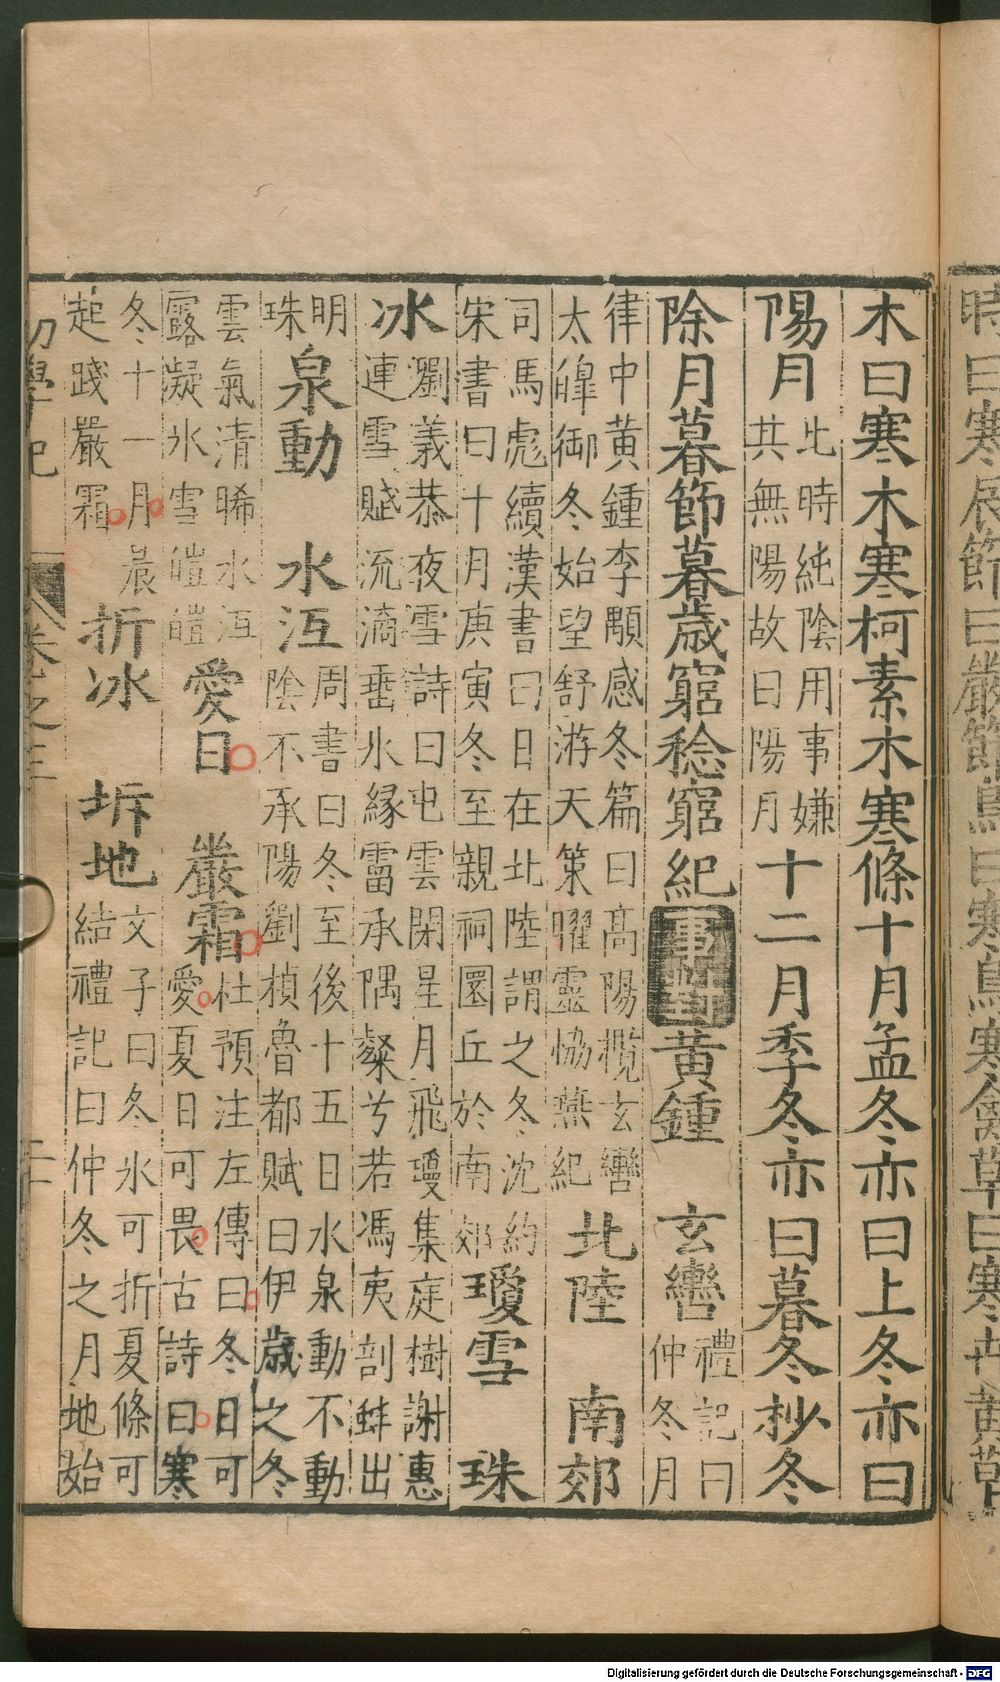 木曰寒木寒柯素木寒條十月孟冬亦曰上冬亦曰
陽月比時純陰用事嫌
共無陽故曰陽月十二月季冬亦曰暮冬杪冬
除月暮節暮歲窮稔窮紀事對黃鍾 玄轡禮記曰
仲冬月
律中黃鍾李顒感冬篇曰高陽攬玄轡
太皡御冬始望舒游天策曜靈恊燕紀 北陸 南郊
司馬彪續漢書曰日在北陸謂之冬沈約
宋書曰十月庚寅冬至親祠圜丘於南郊 瓊雪 珠
冰瀏義恭夜雪詩曰屯雲閉星月飛瓊集庭樹謝惠
連雪賦流滴垂氷緣霤承隅粲兮若馮夷剖蚌出
明
珠 泉動 水冱周書曰冬至後十五日水泉動不動
陰不承陽劉楨魯都賦曰伊歲之冬
雲氣清晞水冱
露凝氷雪皚皚 愛日 嚴霜杜預注左傳曰冬日可
愛夏日可畏古詩曰寒
冬十一月晨
起踐嚴霜 折冰 坼地文子曰冬氷可折夏條可
結禮記曰仲冬之月地始
初學記 卷之三
時曰寒辰節曰嚴節鳥曰寒鳥寒禽草曰寒
Digitalisierung gefördert durch die Deutsche Forschungsgemeinschaft - DFG